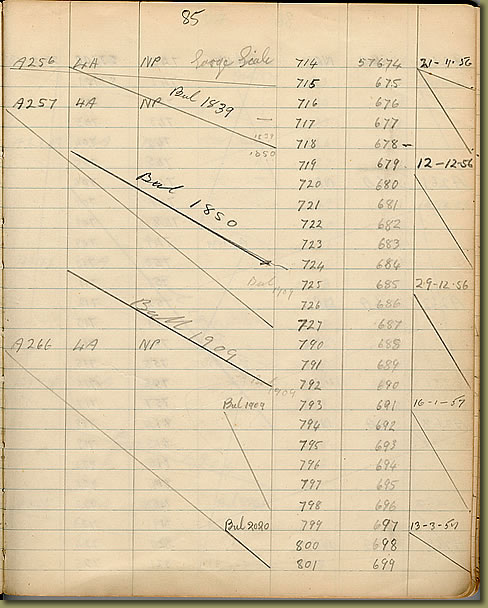 85
A256 4A NP Loose Scale 714 57674 21-11-56
715 675
A257 4A NP Bul 1839 716 676
717 677
718 678
1850
719 679 12-12-56
Bul 1850 720 680
721 681
722 682
723 683
724 684
Bul 1909 725 685 29-12-56
726 686
727 687
Bull 1909
A266 4A NP 790 688
791 689
1909 792 690
Bul 1909 793 691 16-1-57
794 692
795 693
796 694
797 695
798 696
Bul 2020 799 697 13-3-57
800 698
801 699